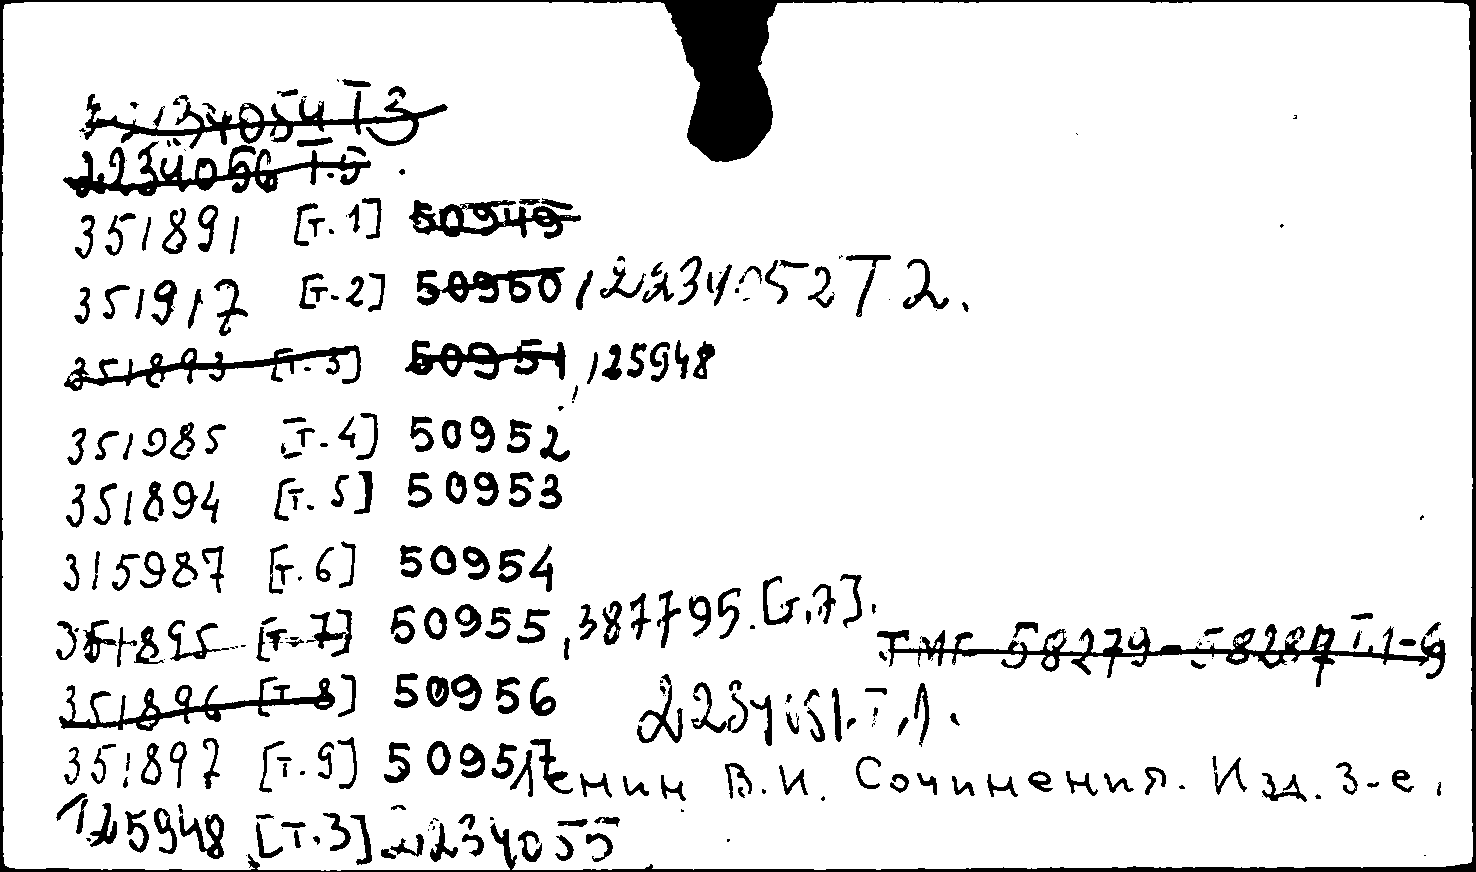 2234054 Т 3
2234056 Т.5
351891 [т.1] 50949
351917 [т.2] 50950, 2234052 Т 2.
351893 [т.3] 50951, 125948
351985 [т.4] 50952
351894 [т.5] 50953
315987 [т.6] 50954
351895 [т.7] 50955, 387795. [т.7].
58279-58287 т.1-9
351896 [т.8] 50956 2234051. Т.1.
351897 [т.9] 50957
Ленин В.И. Сочинения. Изд. 3-е,
125948 [т.3] 2234055